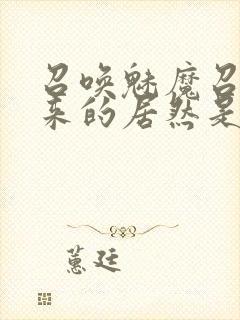 召唤魅魔召
来的居然是
蕙廷